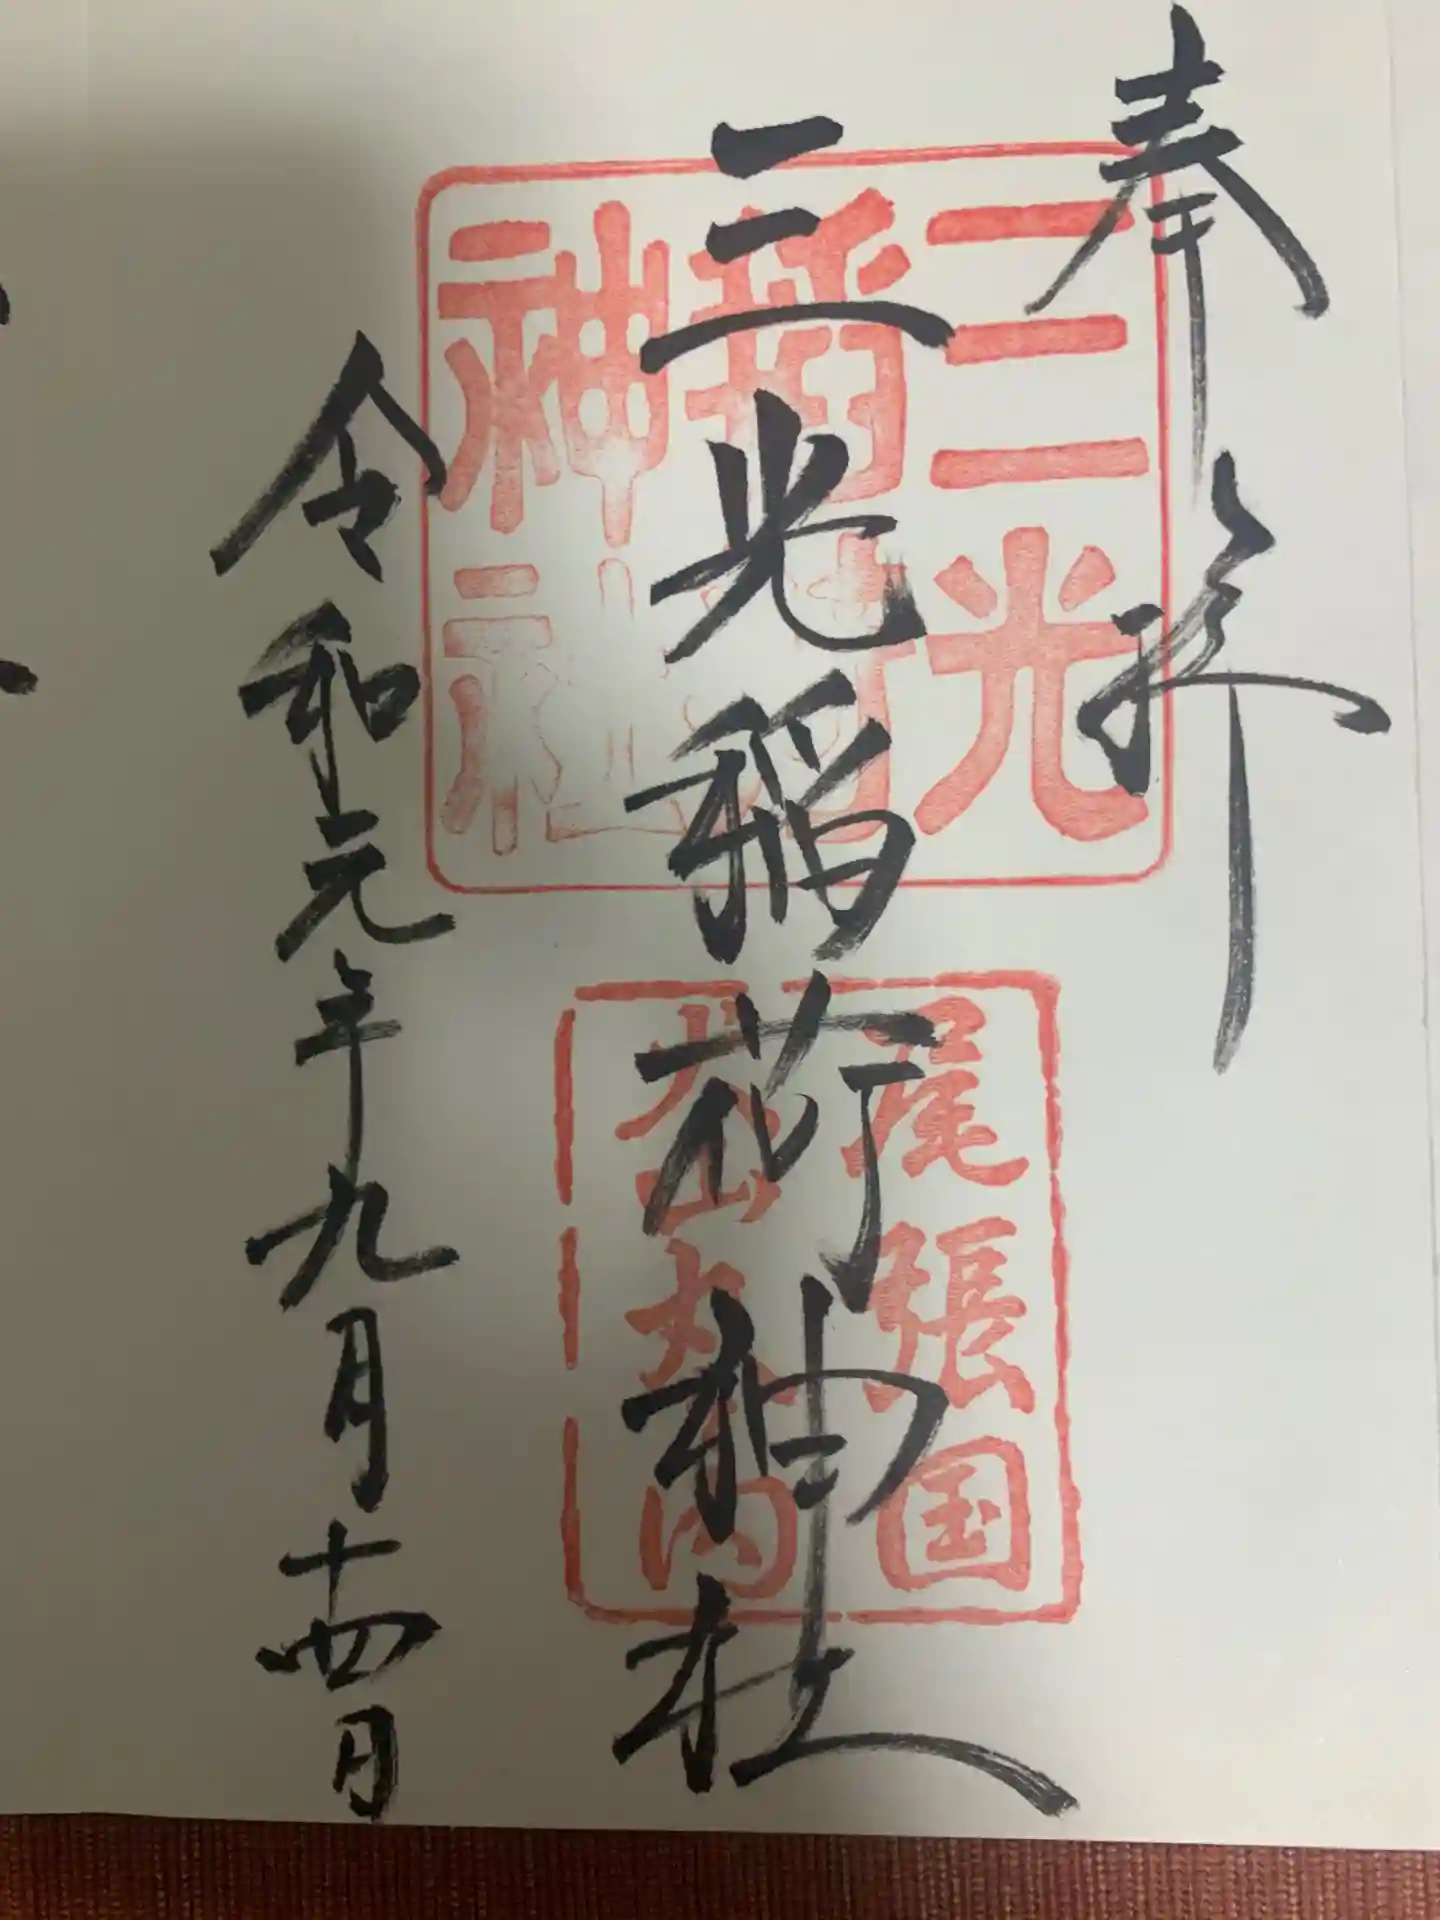 奉拝
三光稲荷神社
令和元年九月十四日
三光
稲荷
神社
尾張国
犬山丸の内